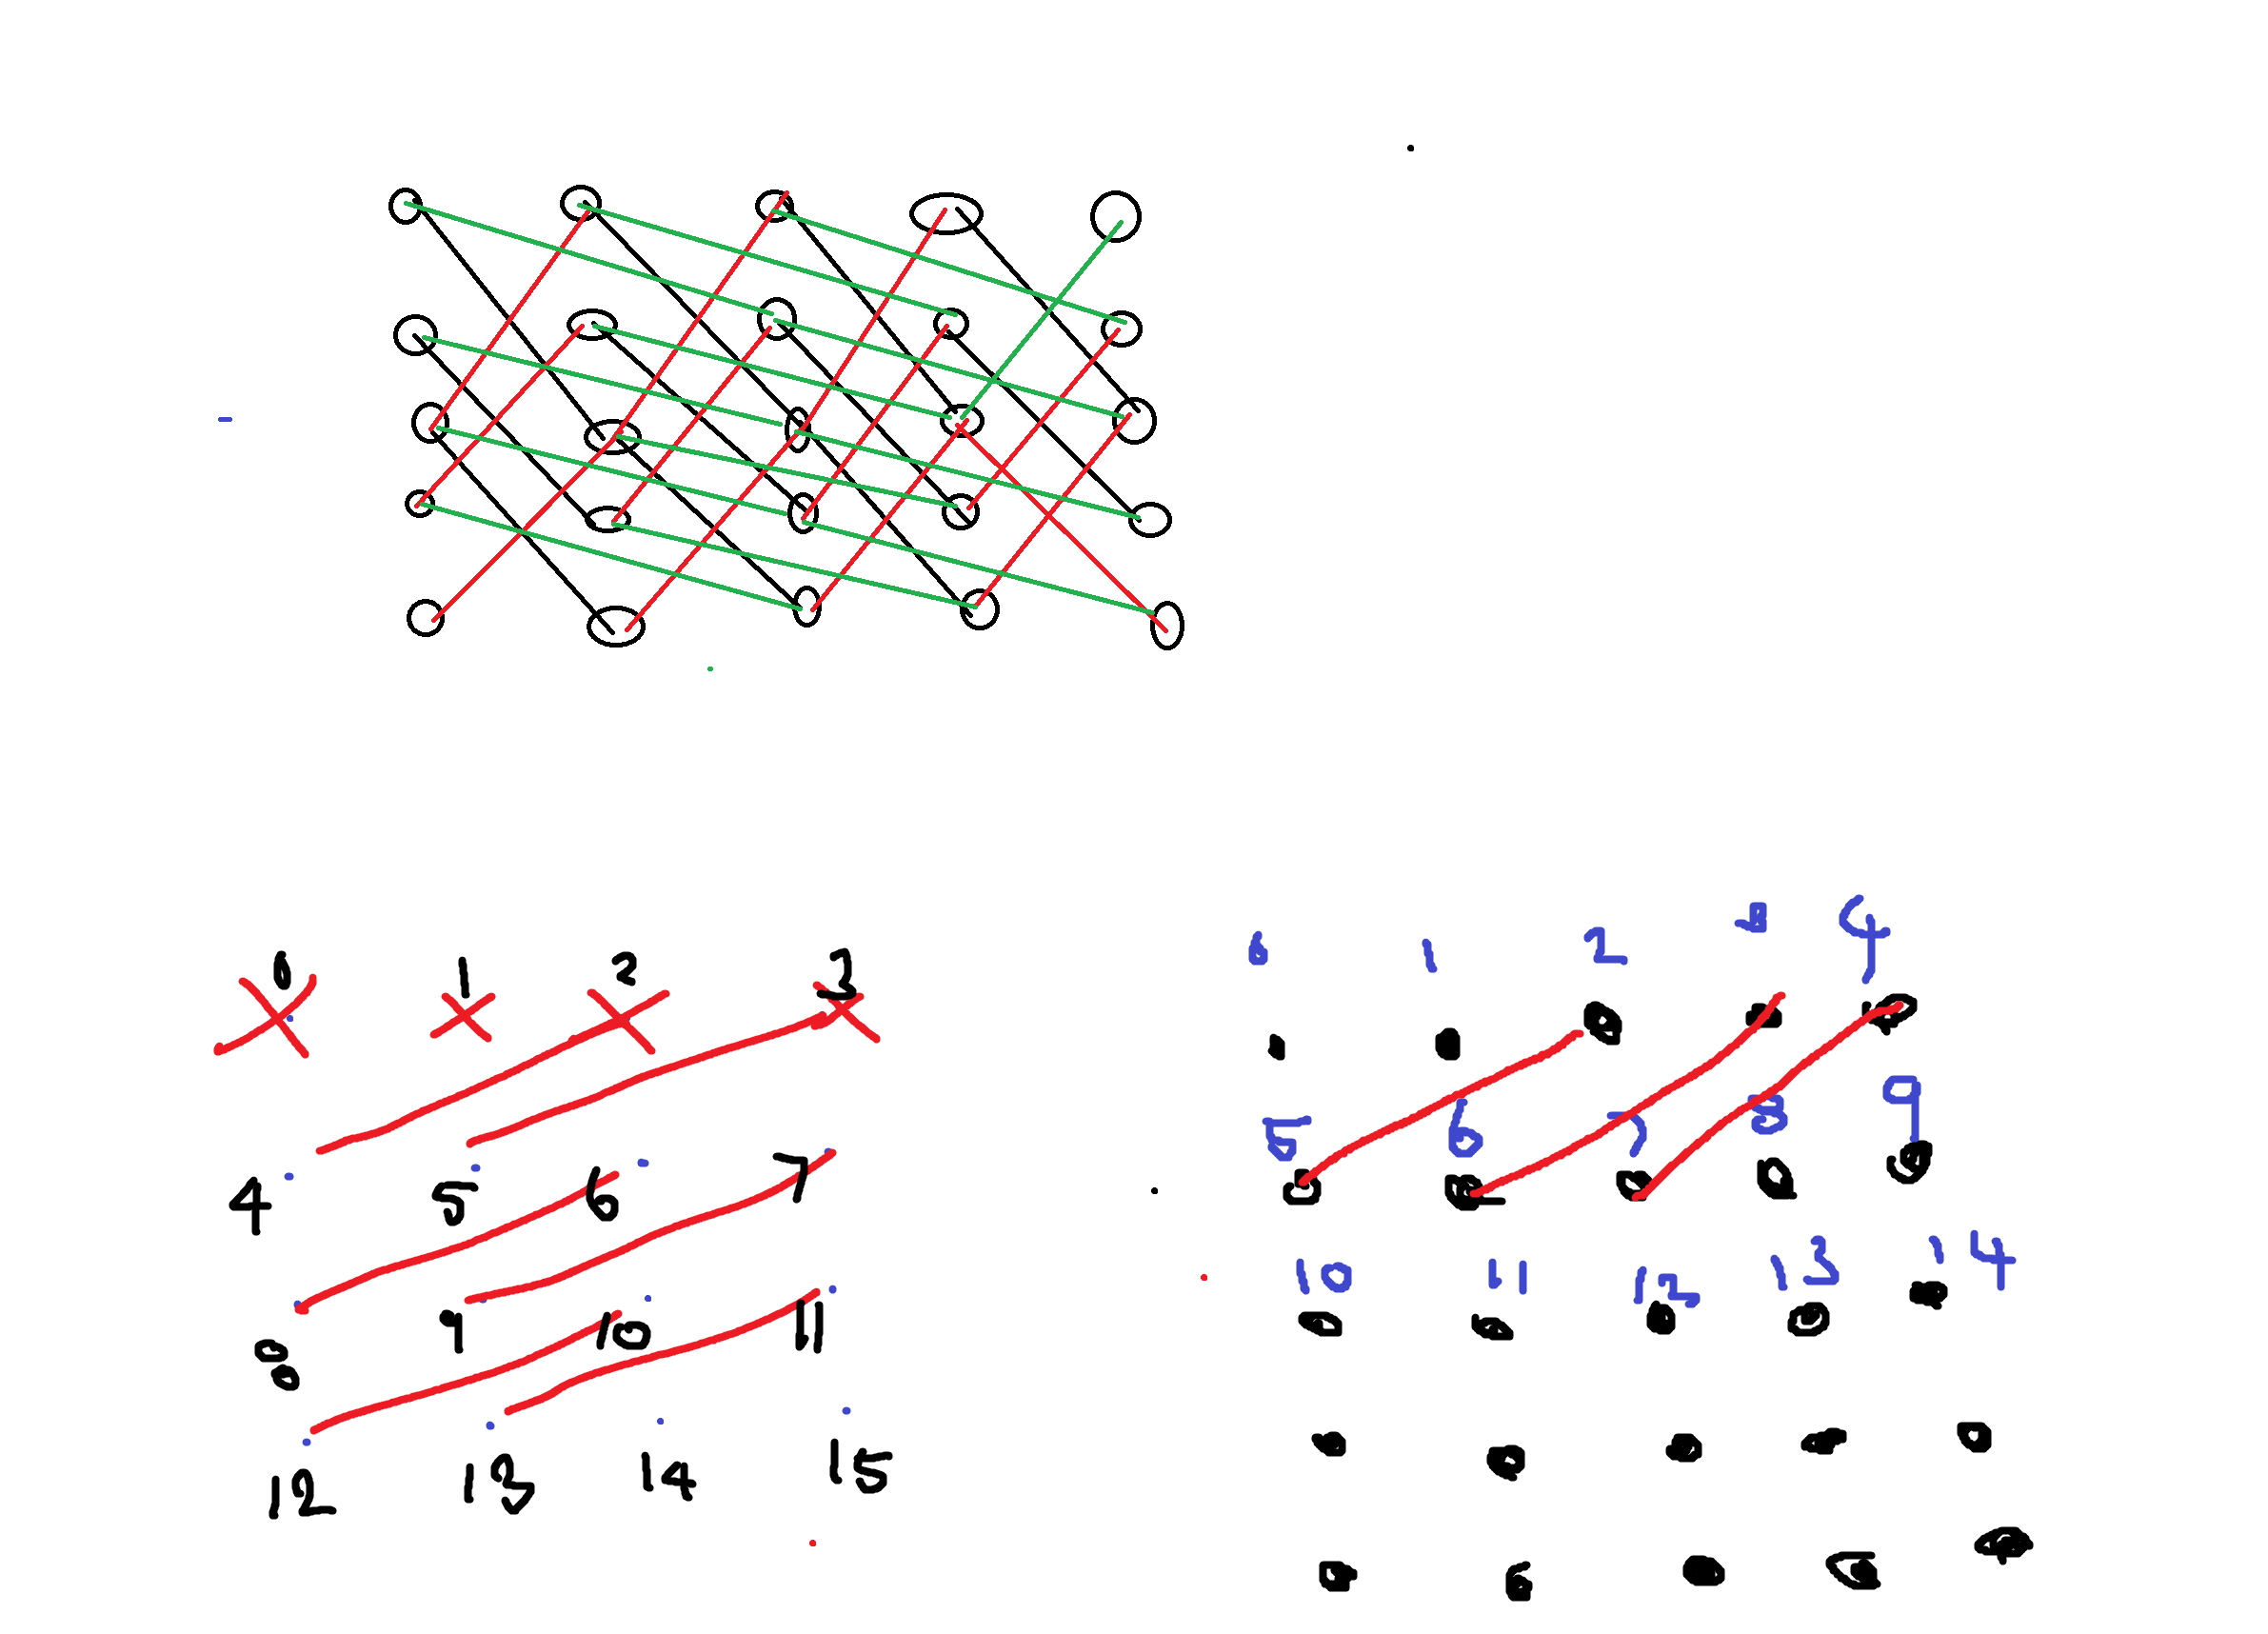 0 1 2 3
4 5 6 7
8 9 10 11
12 13 14 15
0 1 2 3 4
5 6 7 8 9
10 11 12 13 14